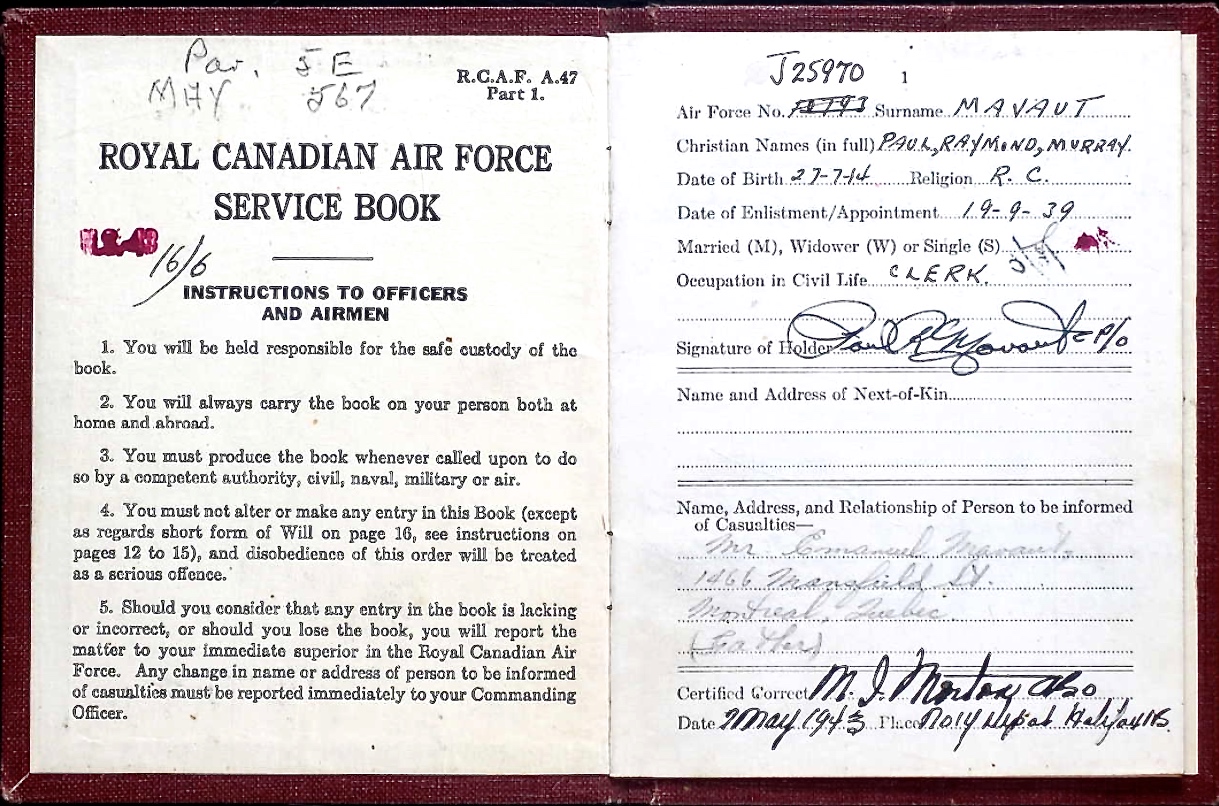 Par. J E
MAY 567
R.C.A.F. A.47
Part 1.
ROYAL CANADIAN AIR FORCE
SERVICE BOOK
16/6
INSTRUCTIONS TO OFFICERS
AND AIRMEN
1. You will be held responsible for the safe custody of the
book.
2. You will always carry the book on your person both at
home and abroad.
3. You must produce the book whenever called upon to do
so by a competent authority, civil, naval, military or air.
4. You must not alter or make any entry in this Book (except
as regards short form of Will on page 16, see instructions on
pages 12 to 15), and disobedience of this order will be treated
as a serious offence.
5. Should you consider that any entry in the book is lacking
or incorrect, or should you lose the book, you will report the
matter to your immediate superior in the Royal Canadian Air
Force. Any change in name or address of person to be informed
of casualties must be reported immediately to your Commanding
Officer.
J25970 1
Air Force No. Surname MAVAUT
Christian Names (in full) PAUL, RAYMOND, MURRAY.
Date of Birth 27-7-14 Religion R. C.
Date of Enlistment/Appointment 19-9-39
Married (M), Widower (W) or Single (S)
Occupation in Civil Life CLERK.
Signature of Holder Paul R Mavaut P/O
Name and Address of Next-of-Kin
Name, Address, and Relationship of Person to be informed
of Casualties—
Mr Emanuel Mavaut.
1466 Mansfield St.
Montreal, Quebec
(Father)
Certified Correct M. J. Morton
Date 7 May 1943 Place No 1 Y Depot Halifax NS